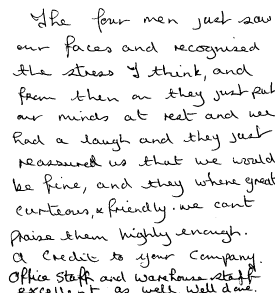 The four men just saw
our faces and recognised
the stress I think, and
from then on they just put
our minds at rest and we
had a laugh and they just
reassured us that we would
be fine, and they where great
curteous, & friendly. we cant
praise them highly enough.
a credit to your company.
Office staff and warehouse staff
excellent as well well done.